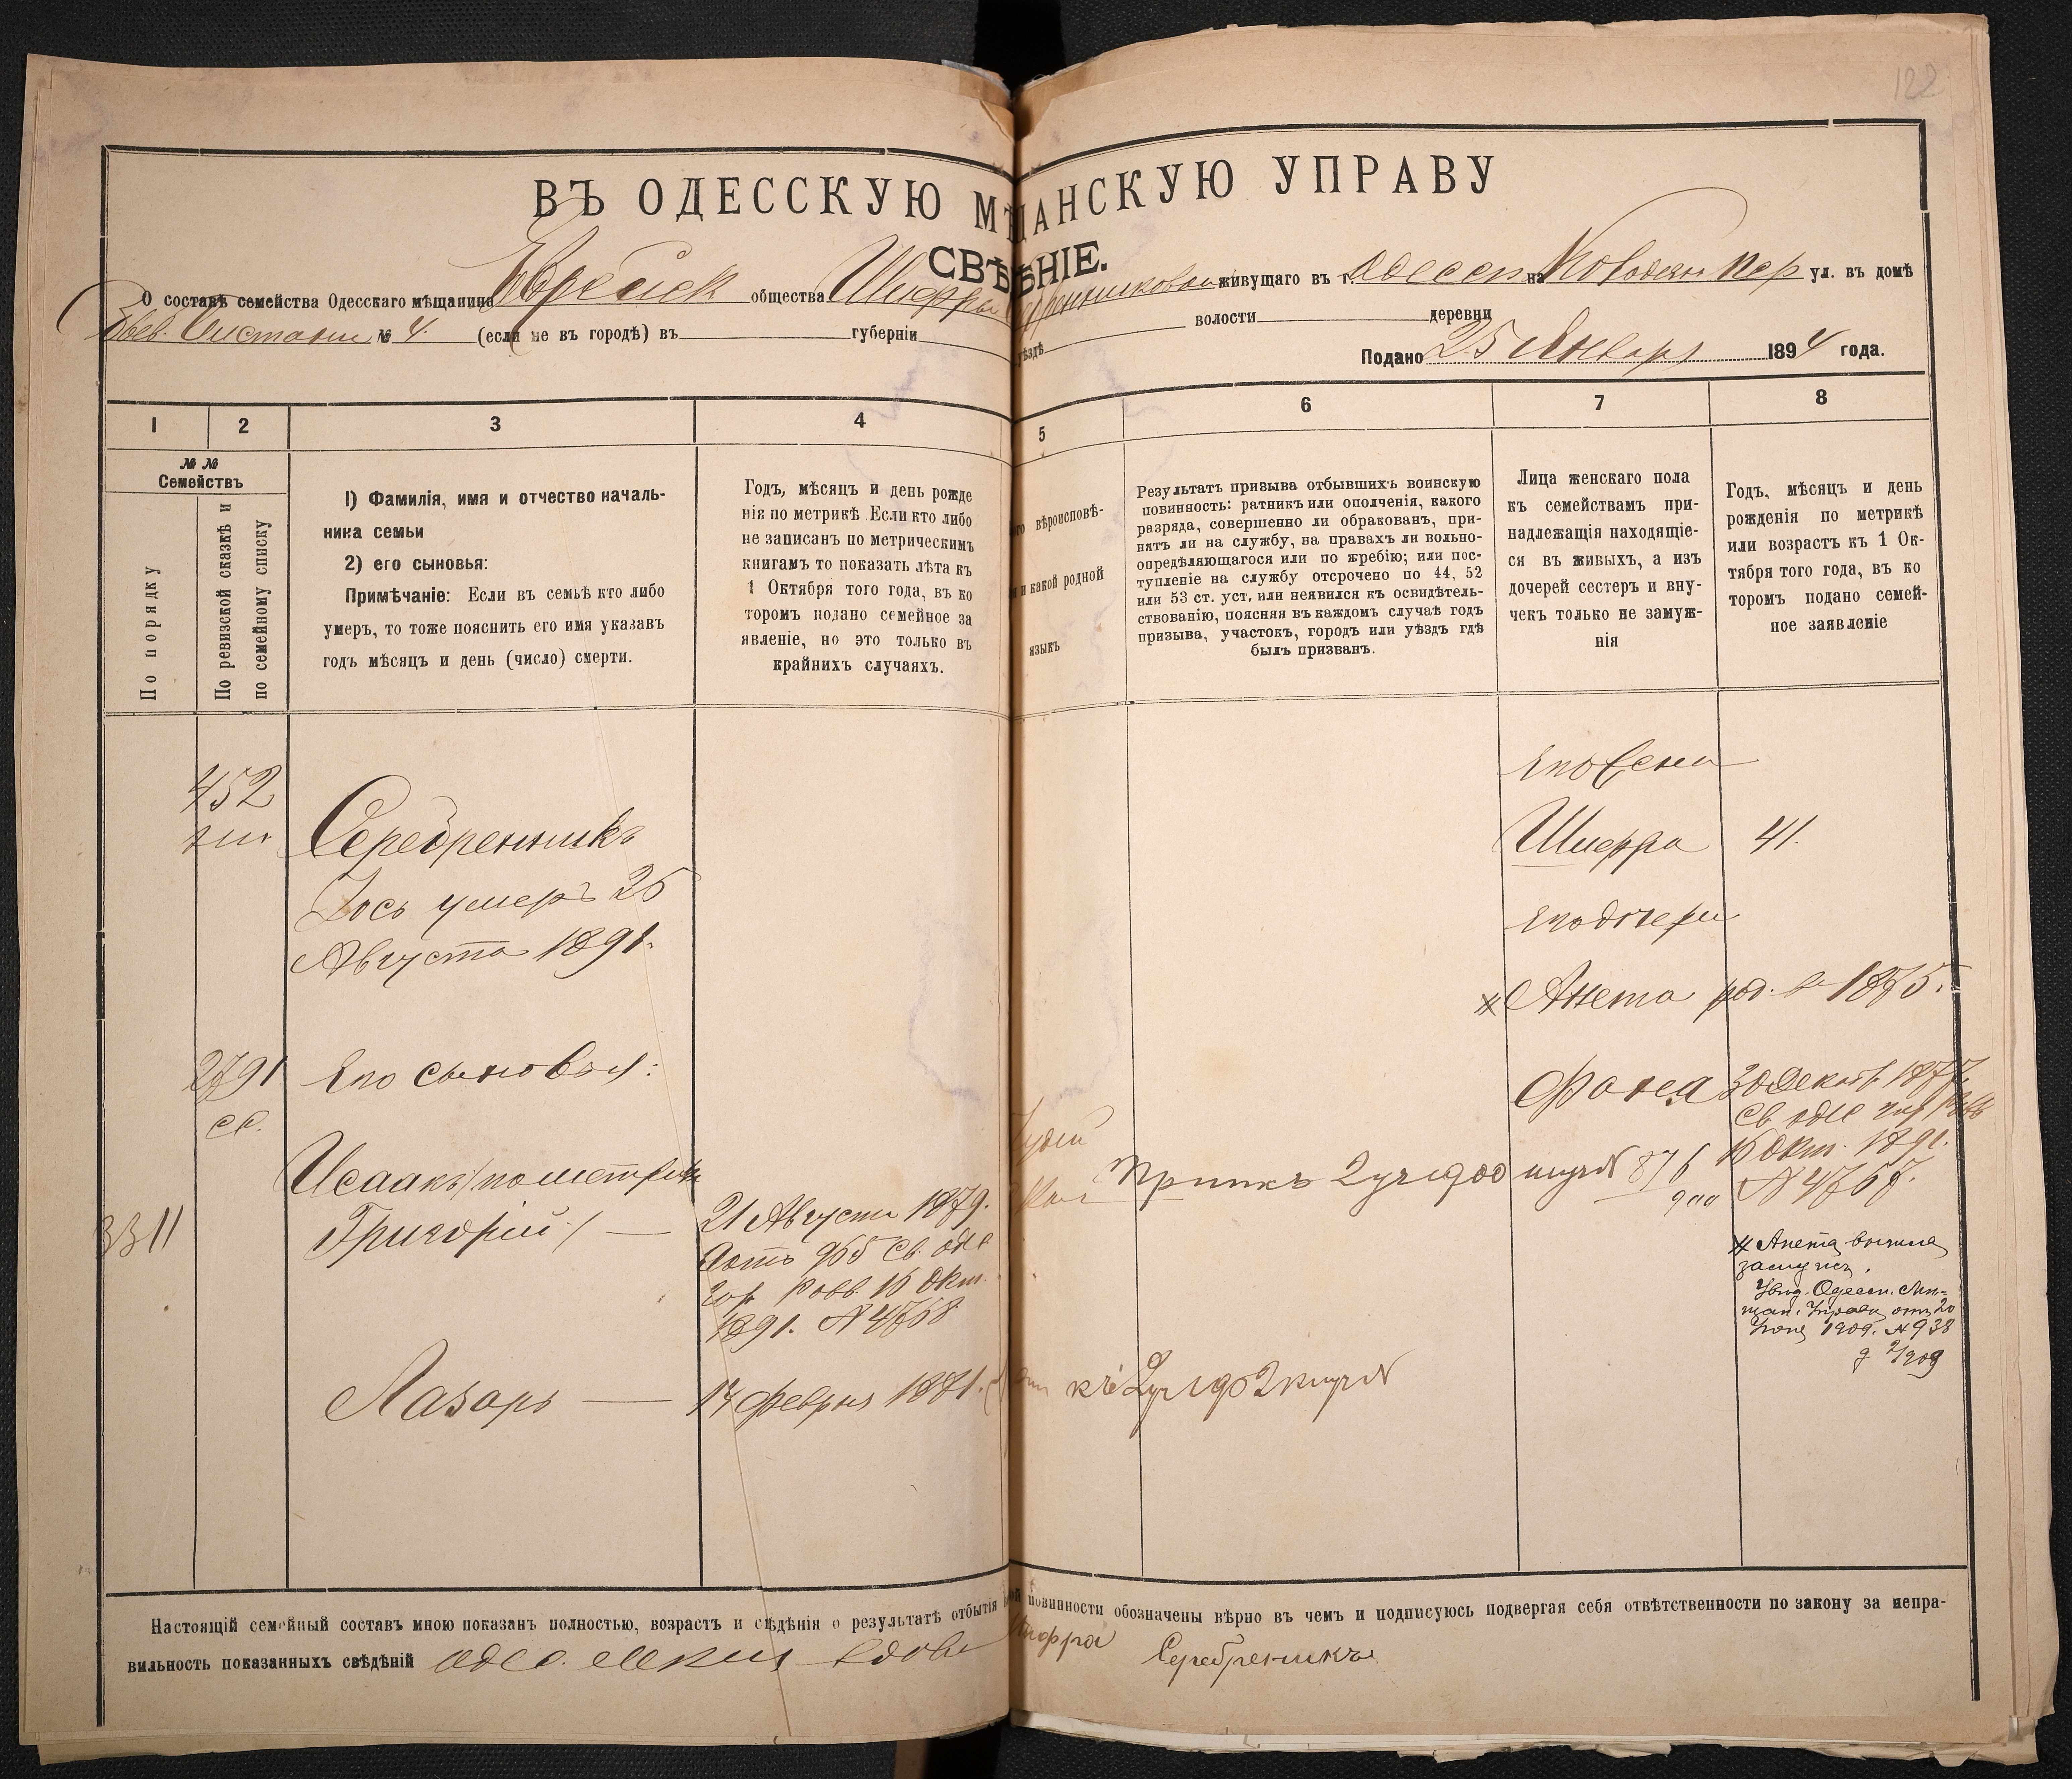 122
ВЪ ОДЕССКУЮ МѢЩАНСКУЮ УПРАВУ
СВѢДѢНІЕ.
О составѣ семейства Одесскаго мѣщанина Еврейск общества Шифры Серебренниковой живущаго въ г. Одессѣ на Колодезн пер ул. въ домѣ
№ 4. (если не въ городѣ) въ губерніи уѣздѣ волости деревни
Подано 25 Января 1894 года.
1 2 3 4 5 6 7 8
№ №
Семействъ
По порядку
По ревизской сказкѣ и
по семейному списку
1) Фамилія, имя и отчество началь-
ника семьи
2) его сыновья:
Примѣчаніе: Если въ семьѣ кто либо
умеръ, то тоже пояснить его имя указавъ
годъ мѣсяцъ и день (число) смерти.
Годъ, мѣсяцъ и день рожде
нія по метрикѣ. Если кто либо
не записанъ по метрическимъ
книгамъ то показать лѣта къ
1 Октября того года, въ ко
торомъ подано семейное за
явленіе, но это только въ
крайнихъ случаяхъ.
вѣроисповѣ-
и какой родной
языкъ
Результатъ призыва отбывшихъ воинскую
повинность: ратникъ или ополченія, какого
разряда, совершенно ли обракованъ, при-
нятъ ли на службу, на правахъ ли вольно-
опредѣляющагося или по жребію; или пос-
тупленіе на службу отсрочено по 44, 52
или 53 ст. уст, или неявился къ освидѣтель-
ствованію, поясняя въ каждомъ случаѣ годъ
призыва, участокъ, городъ или уѣздъ гдѣ
былъ призванъ.
Лица женскаго пола
къ семействамъ при-
надлежащія находящіе-
ся въ живыхъ, а изъ
дочерей сестеръ и вну-
чекъ только не замуж-
нія
Годъ, мѣсяцъ и день
рожденія по метрикѣ
или возрастъ къ 1 Ок-
тября того года, въ ко
торомъ подано семей-
ное заявленіе
452
Серебренникъ
Іось умеръ 25
Августа 1891.
2791
ск.
Его сыновья:
Исаакъ (по метрик
Григорій) —
3311
21 Августа 1879.
965 Св. оде
гор равв. 15 Окт.
1891. № 4768
Лазарь — 14 Февраля 1881.
Іудей
Прип къ 2 уч 1900 876
900
къ 2 уч 1902
Его жена
Шифра 41.
Его дочери
Анета род. в 1875.
Фаня 30 Декаб. 1877.
Св. оде гор равв
15 Окт. 1891.
№ 4767.
Анета вышла
замужъ.
Увѣд. Одесск. Мѣ-
щан. Управы отъ 20
Іюня 1909. № 938
Настоящій семейный составъ мною показанъ полностью, возрастъ и свѣдѣнія о результатѣ отбытія воинской повинности обозначены вѣрно въ чемъ и подписуюсь подвергая себя отвѣтственности по закону за непра-
вильность показанныхъ свѣдѣній Одес. вдова Шифра Серебреникъ